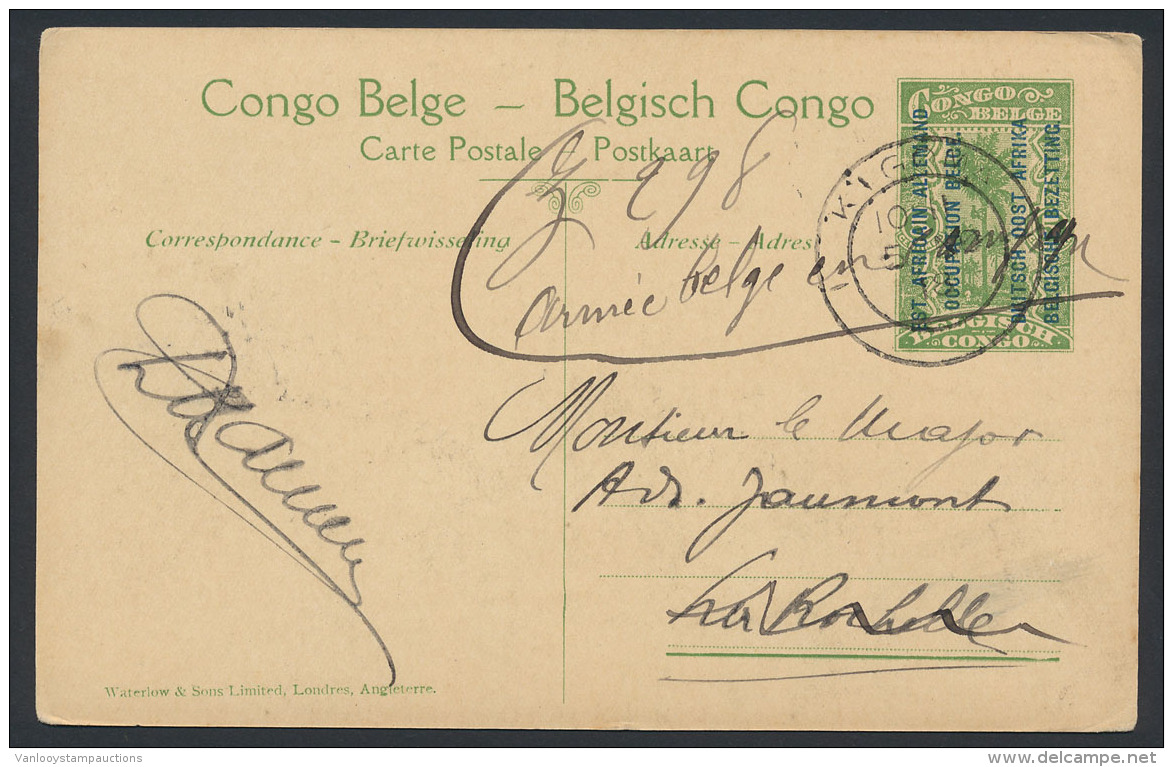 Congo Belge – Belgisch Congo
Carte Postale – Postkaart
Correspondance – Briefwisseling
Adresse – Adres
CONGO BELGE
EST AFRICAIN ALLEMAND
OCCUPATION BELGE.
DUITSCH OOST AFRIKA
BELGISCHE BEZETTING.
BELGISCH CONGO
KIGO
10
5
998
armée belge en campagne
Monsieur le Major
Ad. Jaumont
Waterlow & Sons Limited, Londres, Angleterre.
Vanlooystampauctions
www.delcampe.net